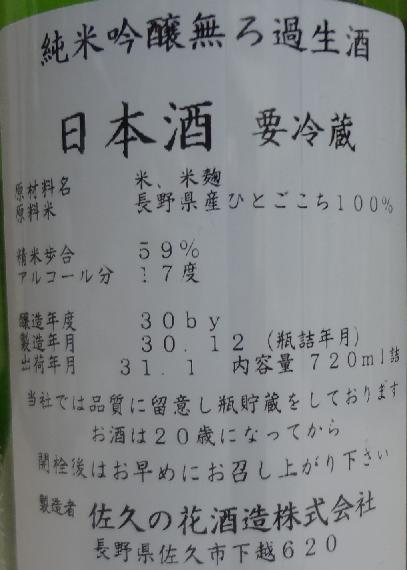 純米吟醸無ろ過生酒
日本酒 要冷蔵
原材料名 米、米麹
原料米 長野県産ひとごこち100%
精米歩合 59%
アルコール分 17度
醸造年度 30by
製造年月 30.12 (瓶詰年月)
出荷年月 31.1 内容量 720ml詰
当社では品質に留意し瓶貯蔵をしております
お酒は20歳になってから
開栓後はお早めにお召し上がり下さい
製造者 佐久の花酒造株式会社
長野県佐久市下越620